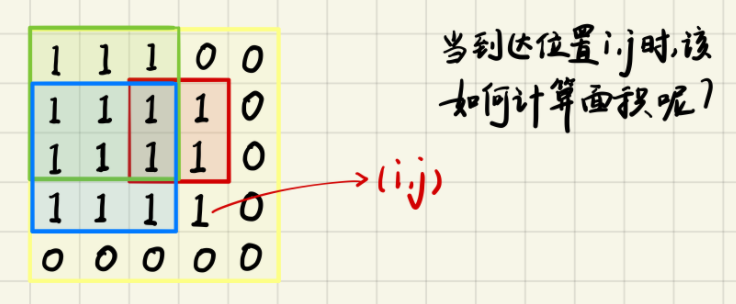 1 1 1 0 0
1 1 1 1 0
1 1 1 1 0
1 1 1 1 0
0 0 0 0 0
当到达位置i,j时,该
如何计算面积呢?
(i,j)